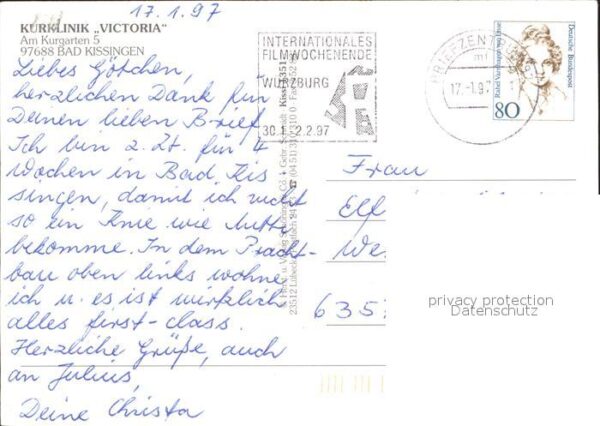 17.1.97
KURKLINIK „VICTORIA"
Am Kurgarten 5
97688 BAD KISSINGEN
Liebes Götchen,
herzlichen Dank für
Deinen lieben Brief.
Ich bin z. Zt. für 4
Wochen in Bad Kis
singen, damit ich nicht
so ein Knie wie Mutti
bekomme. In dem Pracht-
bau oben links wohne
ich u. es ist wirklich
alles first-class.
Herzliche Grüße, auch
an Julius,
Deine Christa
INTERNATIONALES
FILMWOCHENENDE
WÜRZBURG
30.1. 2.2.97
BRIEFZENTRUM
17.-1.97
Deutsche Bundespost
Rahel Varnhagen von Ense
80
Frau
Elf
We
635
privacy protection
Datenschutz